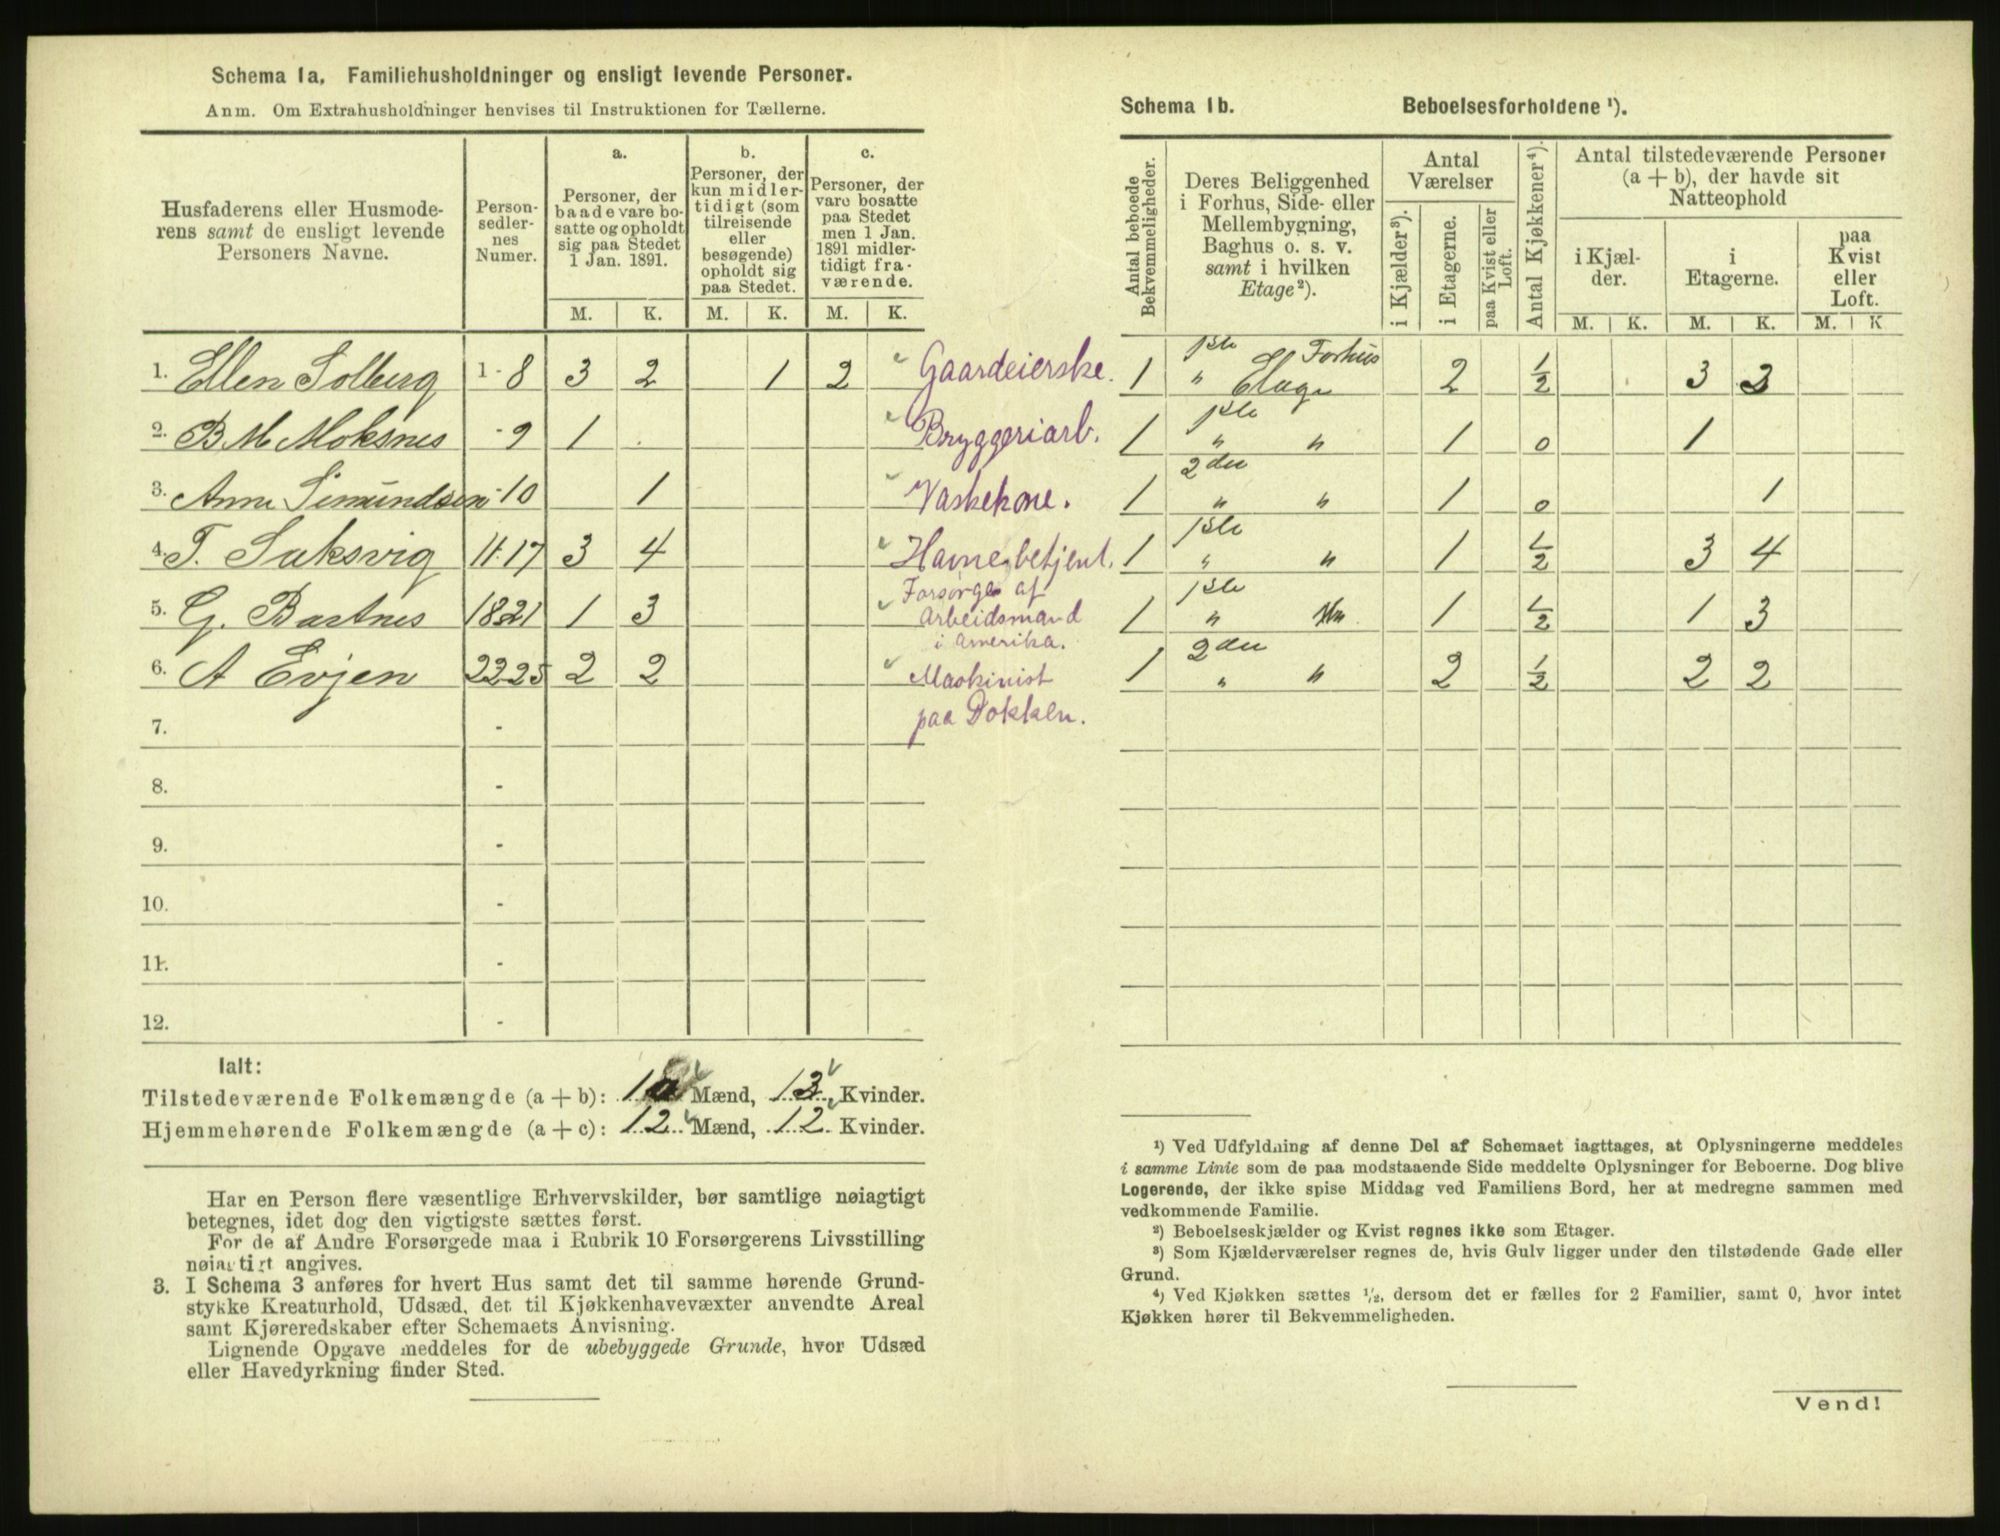 Schema 1a. Familiehusholdninger og ensligt levende Personer.
Anm. Om Extrahusholdninger henvises til Instruktionen for Tællerne.
Husfaderens eller Husmode-
rens samt de ensligt levende
Personers Navne.
Person-
sedler-
nes
Numer.
a.
Personer, der
baade vare bo-
satte og opholdt
sig paa Stedet
1 Jan. 1891.
b.
Personer, der
kun midler-
tidigt (som
tilreisende
eller
besøgende)
opholdt sig
paa Stedet.
c.
Personer, der
vare bosatte
paa Stedet
men 1 Jan.
1891 midler-
tidigt fra-
værende.
M. K. M. K. M. K.
1. Ellen Solberg 1-8 3 2 1 2 Gaardeierske.
2. B M Moksnes -9 1 Bryggeriarb.
3. Anne Simundsen -10 1 Vaskekone.
4. T. Saksvig 11-17 3 4 Havnebetjent.
5. G. Bastnes 18-21 1 3 Forsørges af
Arbeidsmand
i Amerika.
6. A Evjen 22-25 2 2 Maskinist
paa Dokken.
7. -
8. -
9. -
10. -
11. -
12. -
Ialt:
Tilstedeværende Folkemængde (a + b): Mænd, 13 Kvinder.
Hjemmehørende Folkemængde (a + c): 12 Mænd, 12 Kvinder.
Har en Person flere væsentlige Erhvervskilder, bør samtlige nøiagtigt
betegnes, idet dog den vigtigste sættes først.
For de af Andre Forsørgede maa i Rubrik 10 Forsørgerens Livsstilling
nøiagtigt angives.
3. I Schema 3 anføres for hvert Hus samt det til samme hørende Grund-
stykke Kreaturhold, Udsæd, det til Kjøkkenhavevæxter anvendte Areal
samt Kjøreredskaber efter Schemaets Anvisning.
Lignende Opgave meddeles for de ubebyggede Grunde, hvor Udsæd
eller Havedyrkning finder Sted.
Schema 1b. Beboelsesforholdene ¹).
Antal beboede
Bekvemmeligheder.
Deres Beliggenhed
i Forhus, Side- eller
Mellembygning,
Baghus o. s. v.
samt i hvilken
Etage²).
Antal
Værelser
i Kjælder³).
i Etagerne.
paa Kvist eller
Loft.
Antal Kjøkkener⁴).
Antal tilstedeværende Personer
(a + b), der havde sit
Natteophold
i Kjæl-
der.
i
Etagerne.
paa
Kvist
eller
Loft.
M. K. M. K. M. K
1 1ste Forhus
" Etage 2 ½ 3 3
1 1ste
" " 1 0 1
1 2den
" " 1 0 1
1 1ste
" " 1 ½ 3 4
1 1ste
" 1 ½ 1 3
1 2den
" " 2 ½ 2 2
¹) Ved Udfyldning af denne Del af Schemaet iagttages, at Oplysningerne meddeles
i samme Linie som de paa modstaaende Side meddelte Oplysninger for Beboerne. Dog blive
Logerende, der ikke spise Middag ved Familiens Bord, her at medregne sammen med
vedkommende Familie.
²) Beboelseskjælder og Kvist regnes ikke som Etager.
³) Som Kjælderværelser regnes de, hvis Gulv ligger under den tilstødende Gade eller
Grund.
⁴) Ved Kjøkken sættes ½, dersom det er fælles for 2 Familier, samt 0, hvor intet
Kjøkken hører til Bekvemmeligheden.
Vend!